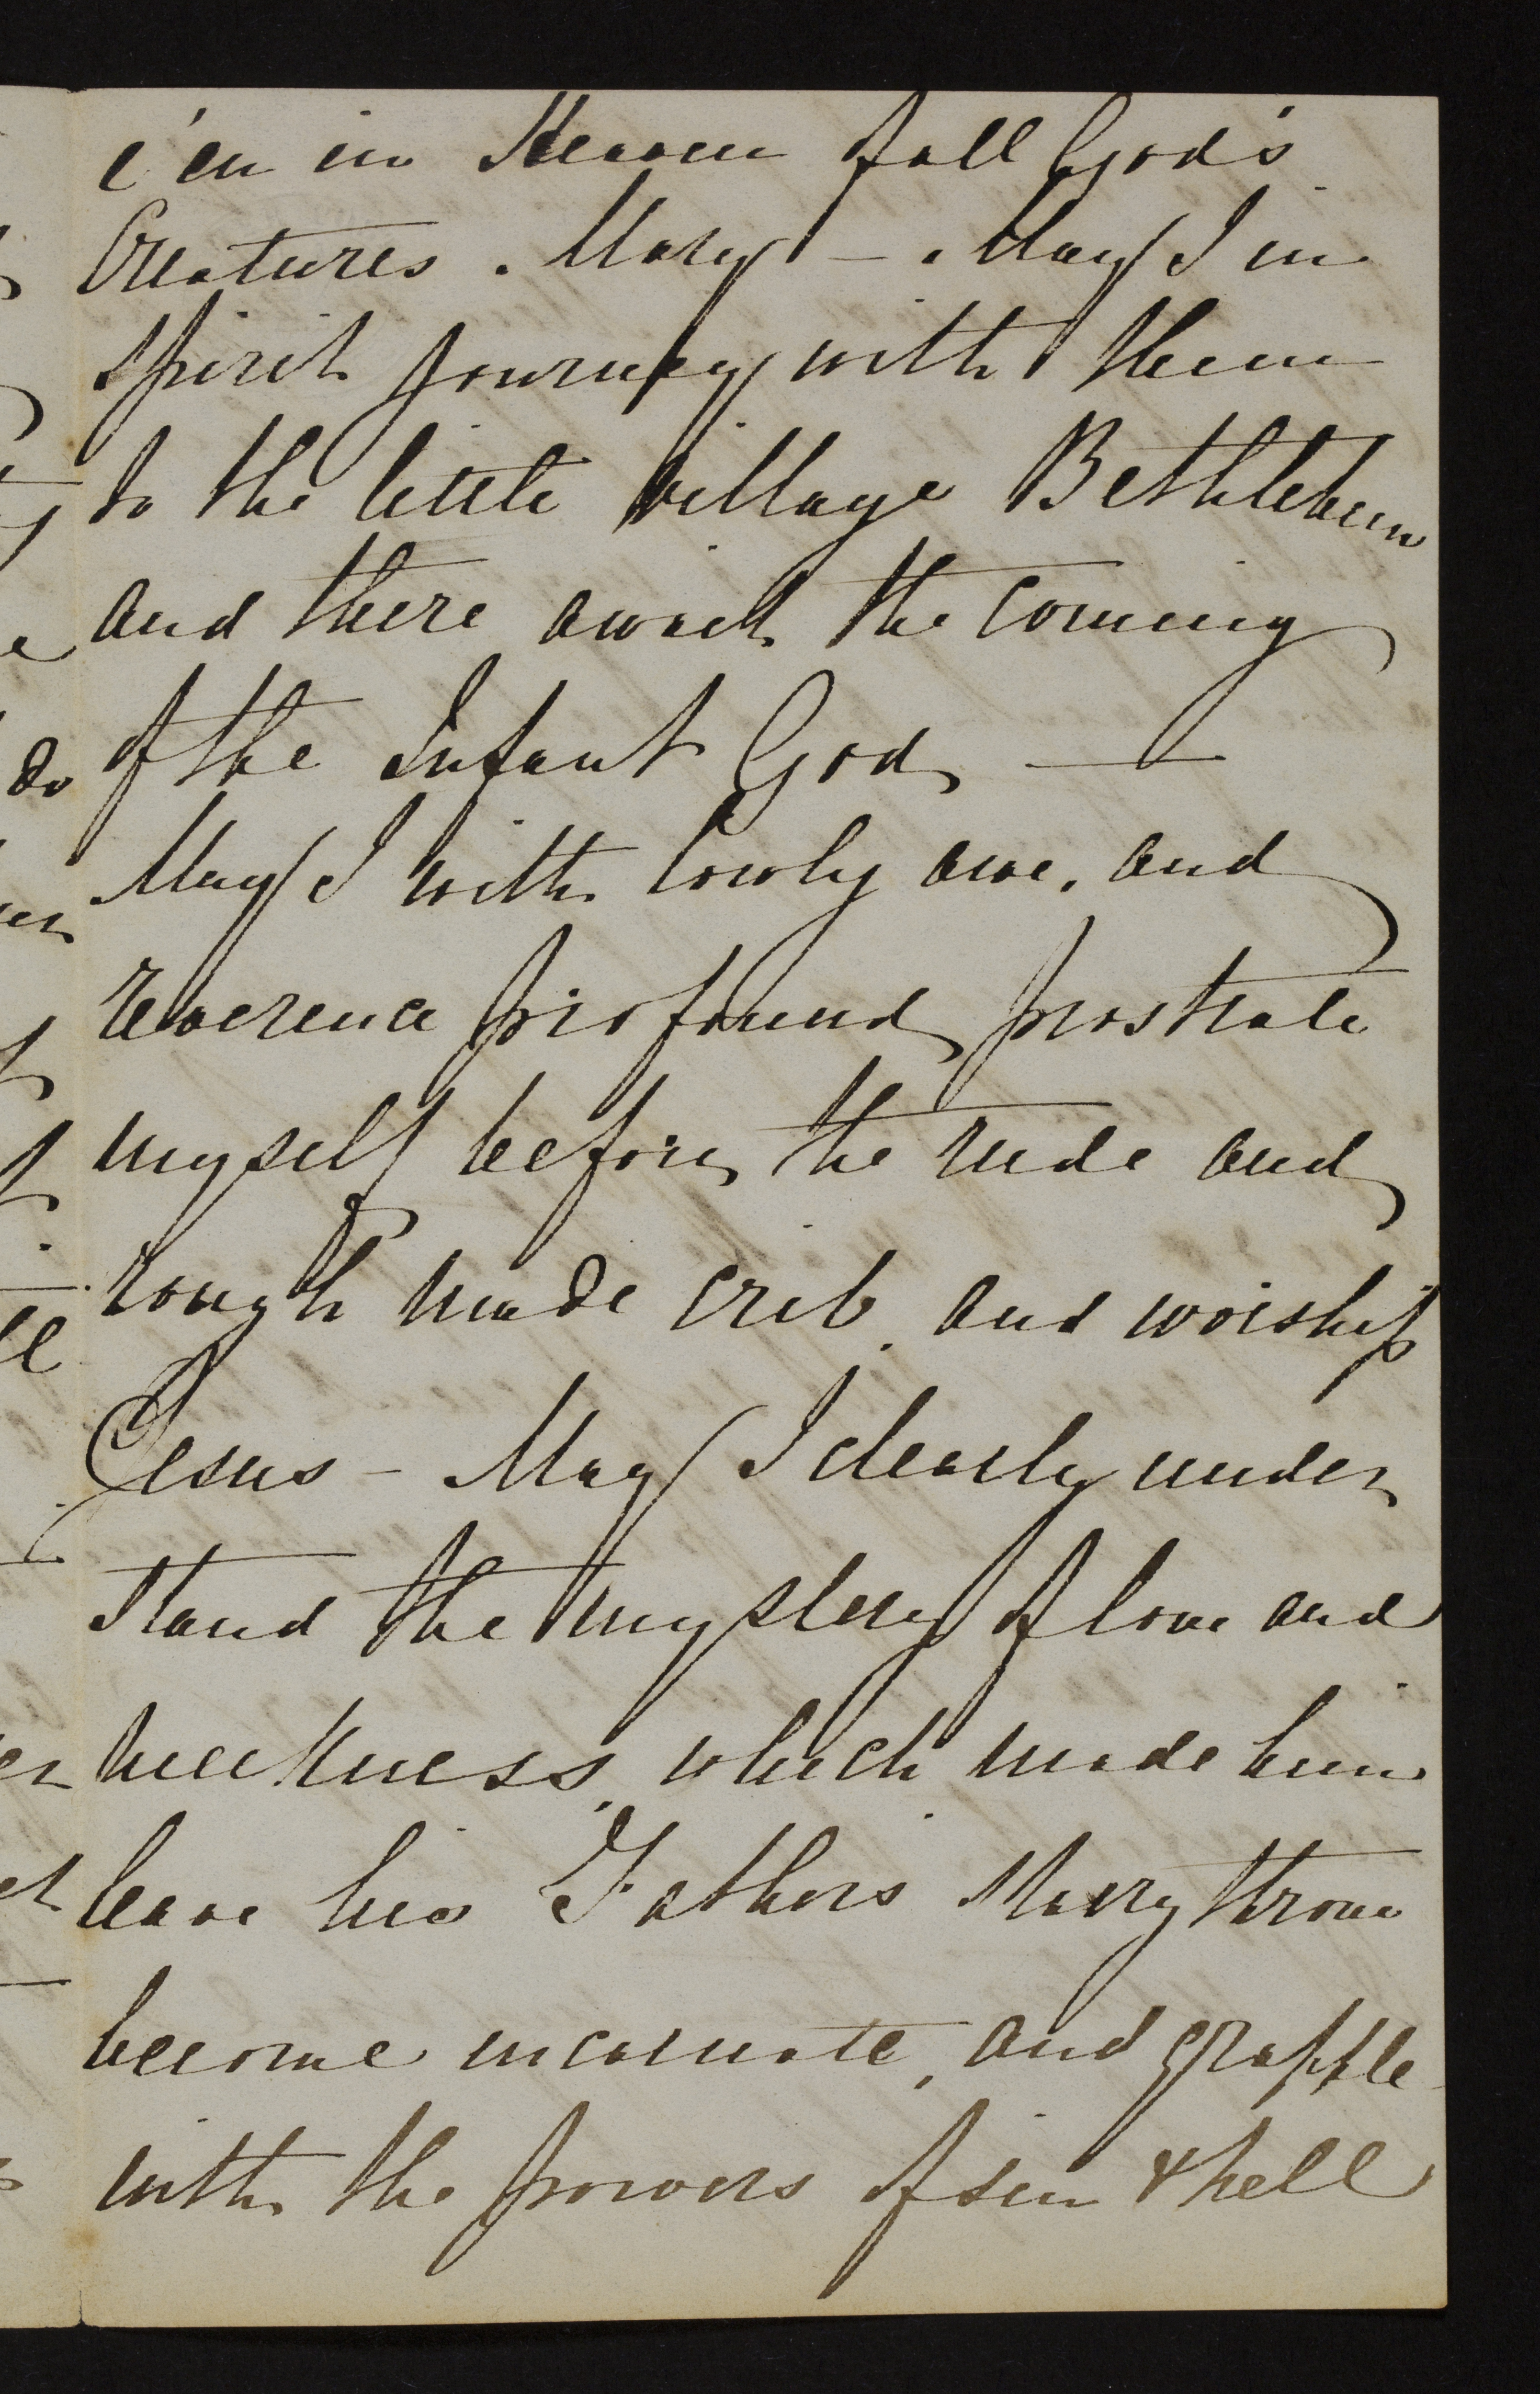 e'en in Heaven of all God's
Creatures. Mary - . May I in
spirit journey with them
to the little village Bethlehem
and there await the coming
of the Infant God —
May I with lowly awe, and
reverence profound prostrate
myself before the rude and
rough made crib, and worship
Jesus - May I clearly under
stand the mystery of love and
meekness, which made him
leave his Fathers starry throne
become incarnate, and grapple
with the powers of sin & hell